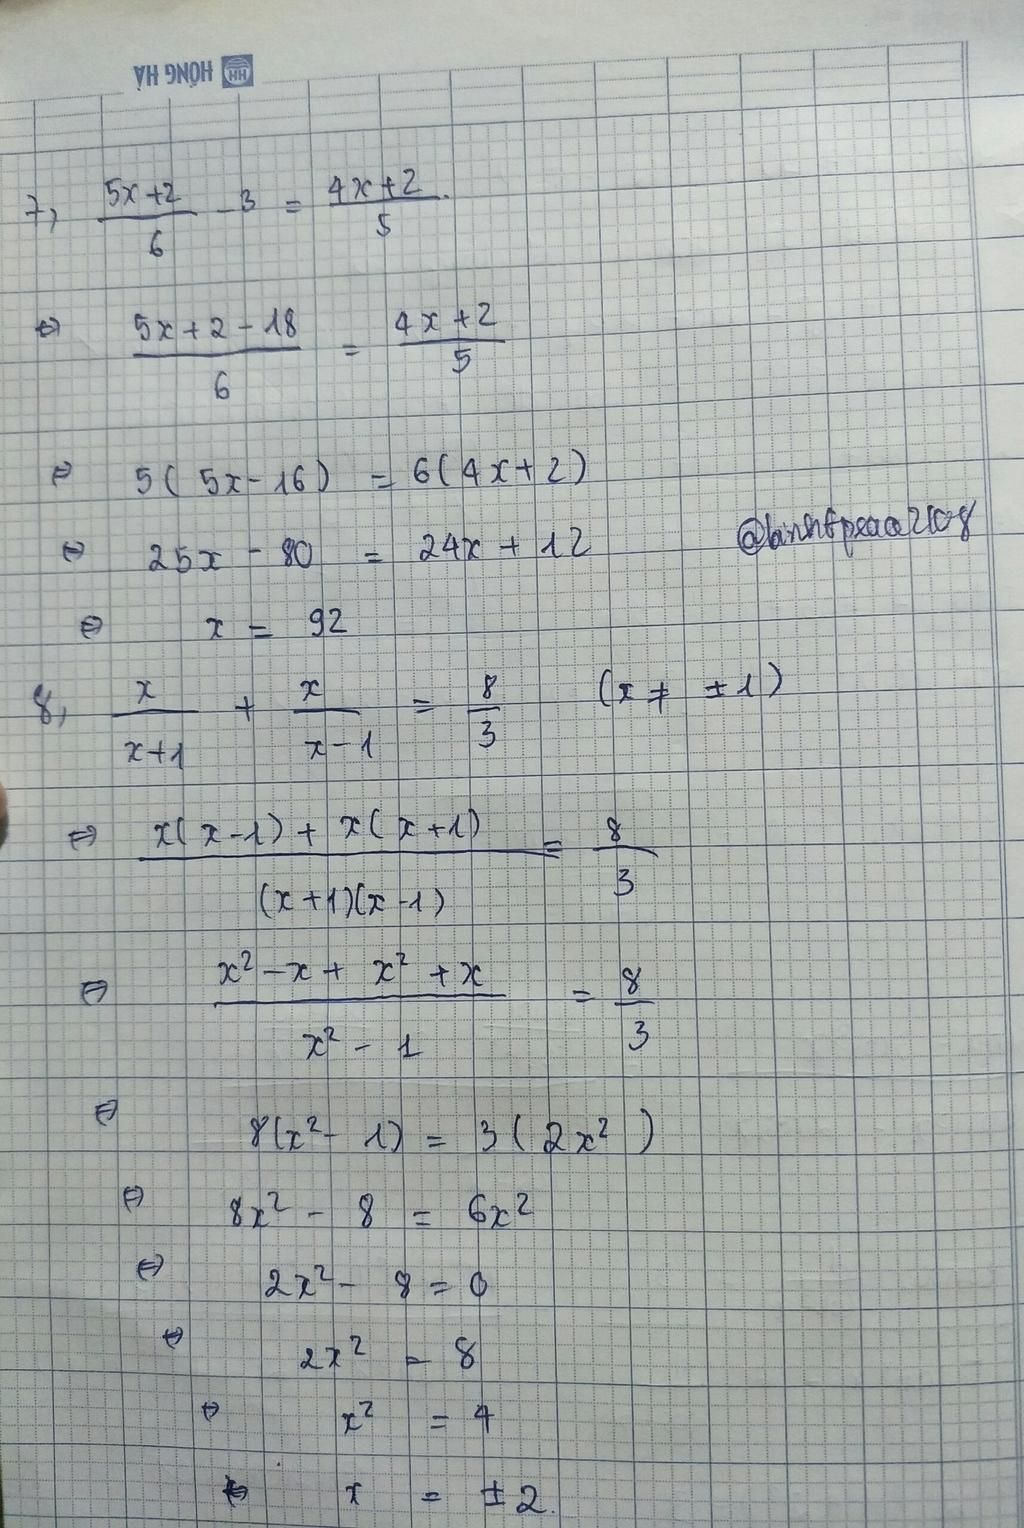 HỒNG HÀ HH
7, (5x+2)/6 - 3 = (4x+2)/5.
⇔ (5x+2-18)/6 = (4x+2)/5
⇔ 5(5x-16) = 6(4x+2)
⇔ 25x - 80 = 24x + 12
⇔ x = 92
8, x/(x+1) + x/(x-1) = 8/3 (x ≠ ±1)
⇔ (x(x-1) + x(x+1))/((x+1)(x-1)) = 8/3
⇔ (x² - x + x² + x)/(x² - 1) = 8/3
⇔ 8(x² - 1) = 3(2x²)
⇔ 8x² - 8 = 6x²
⇔ 2x² - 8 = 0
⇔ 2x² = 8
⇔ x² = 4
⇔ x = ±2.